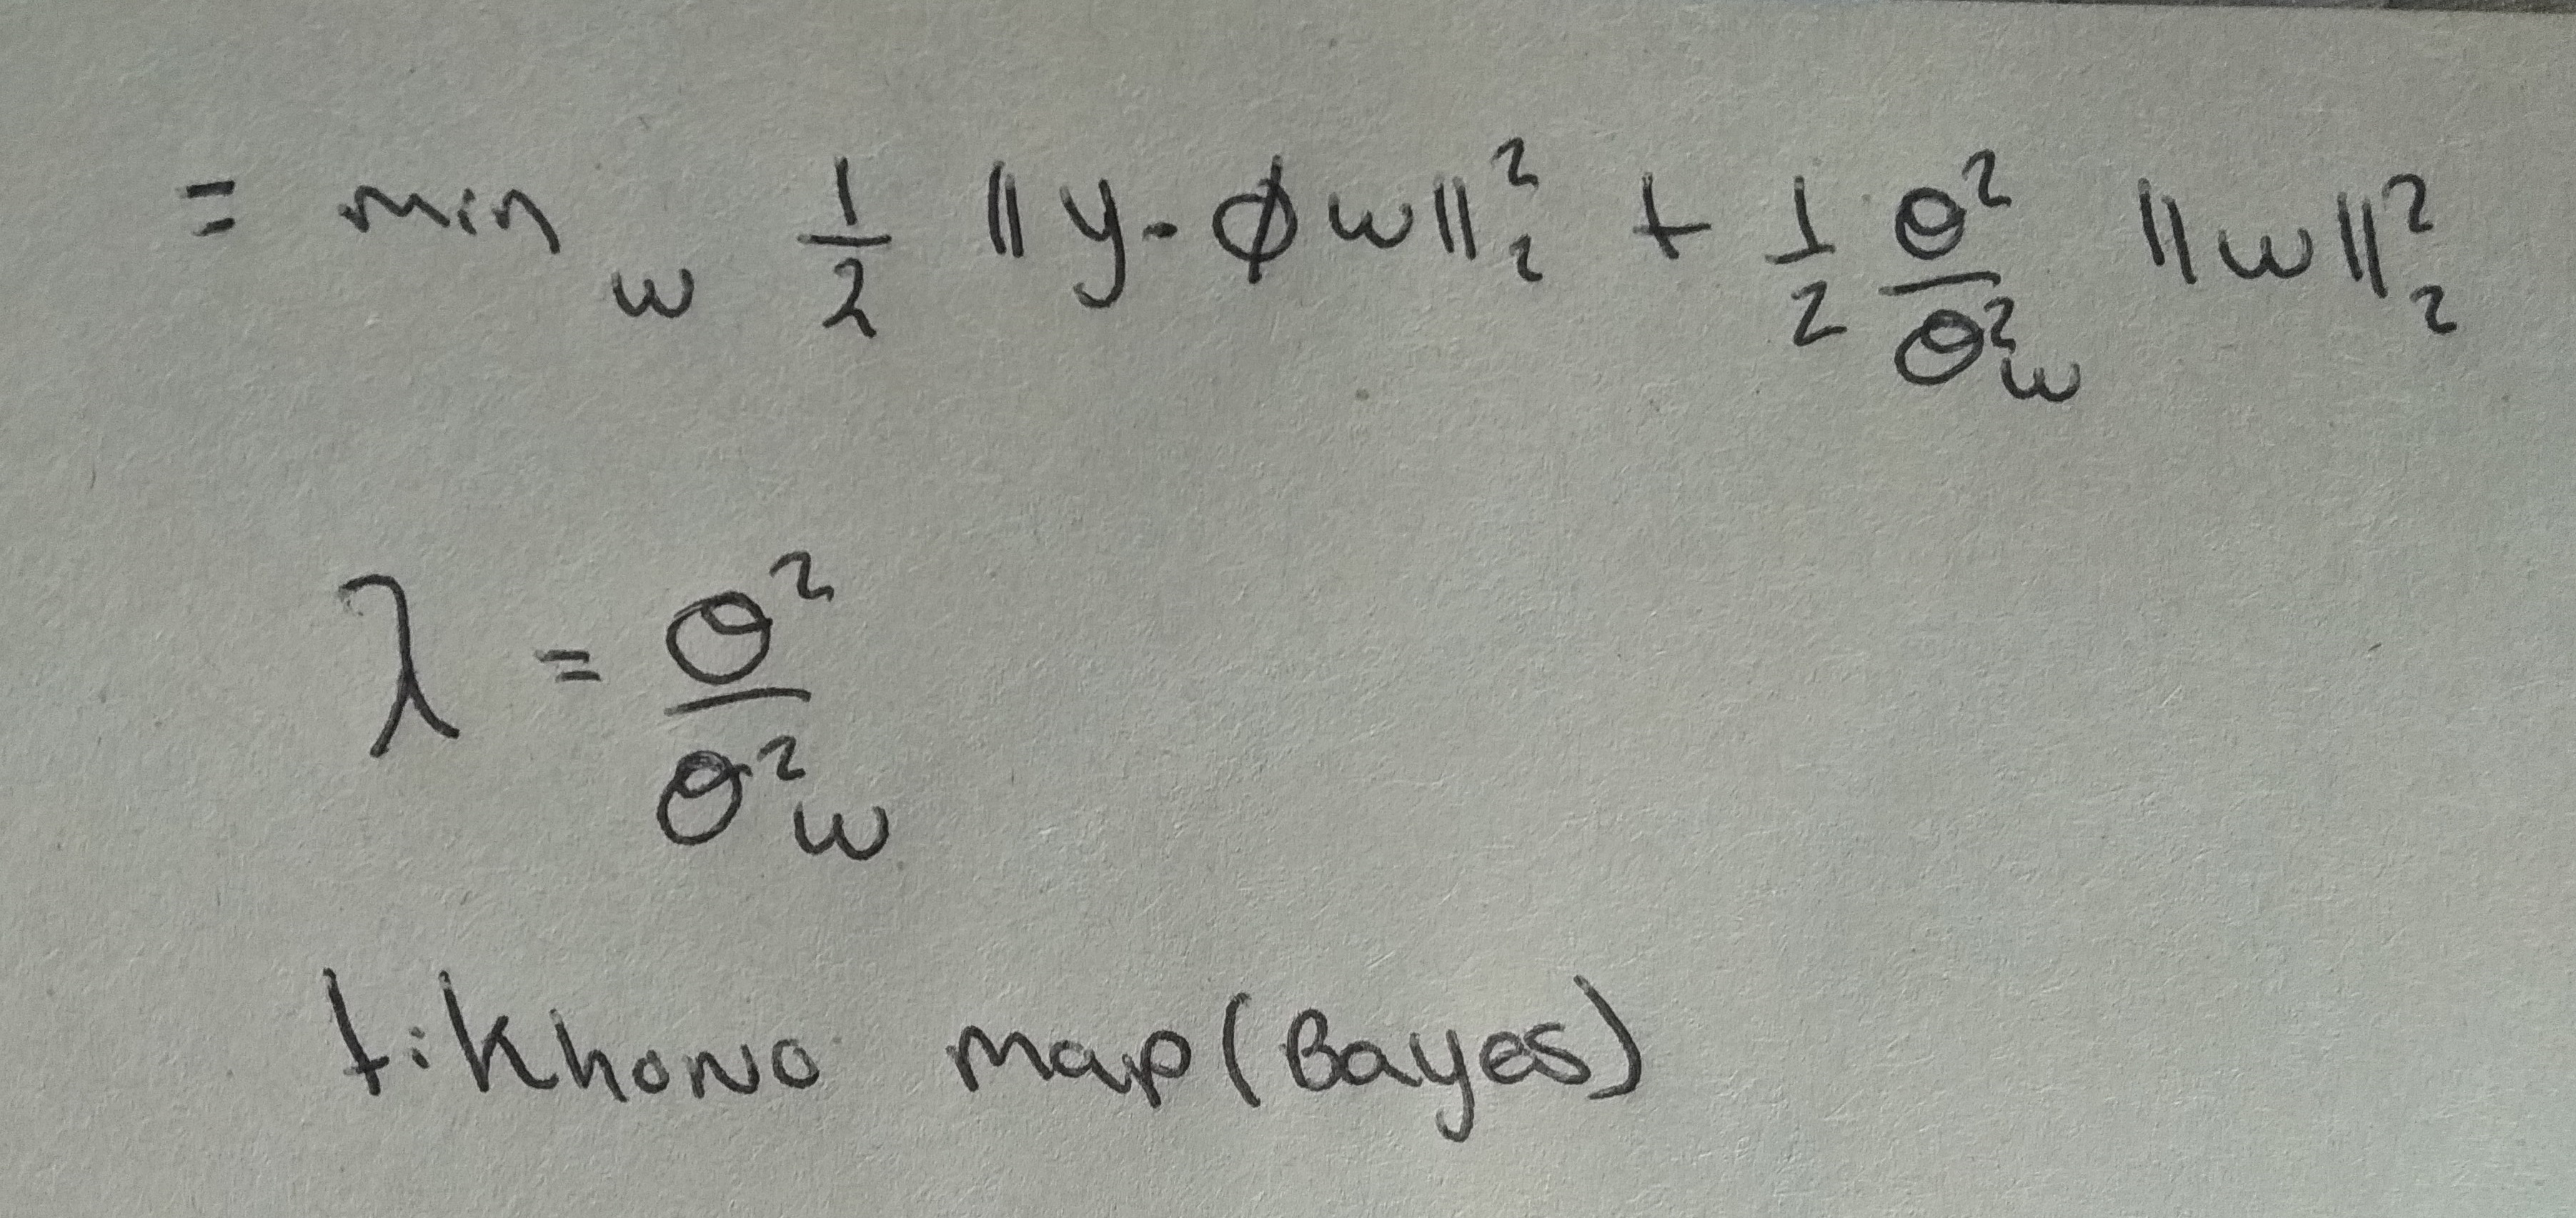 = min_w 1/2 ||y - ϕw||²₂ + 1/2 θ²/θ²_w ||w||²₂
λ = θ²/θ²_w
tikhono map (Bayes)